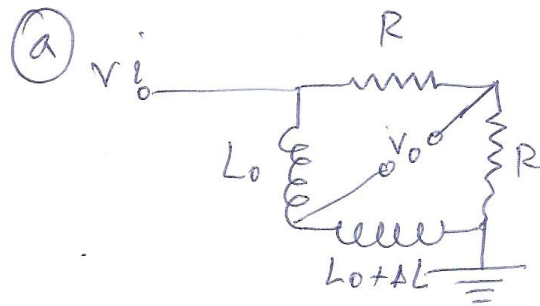 a
Vi
R
L0
V0
R
L0+ΔL